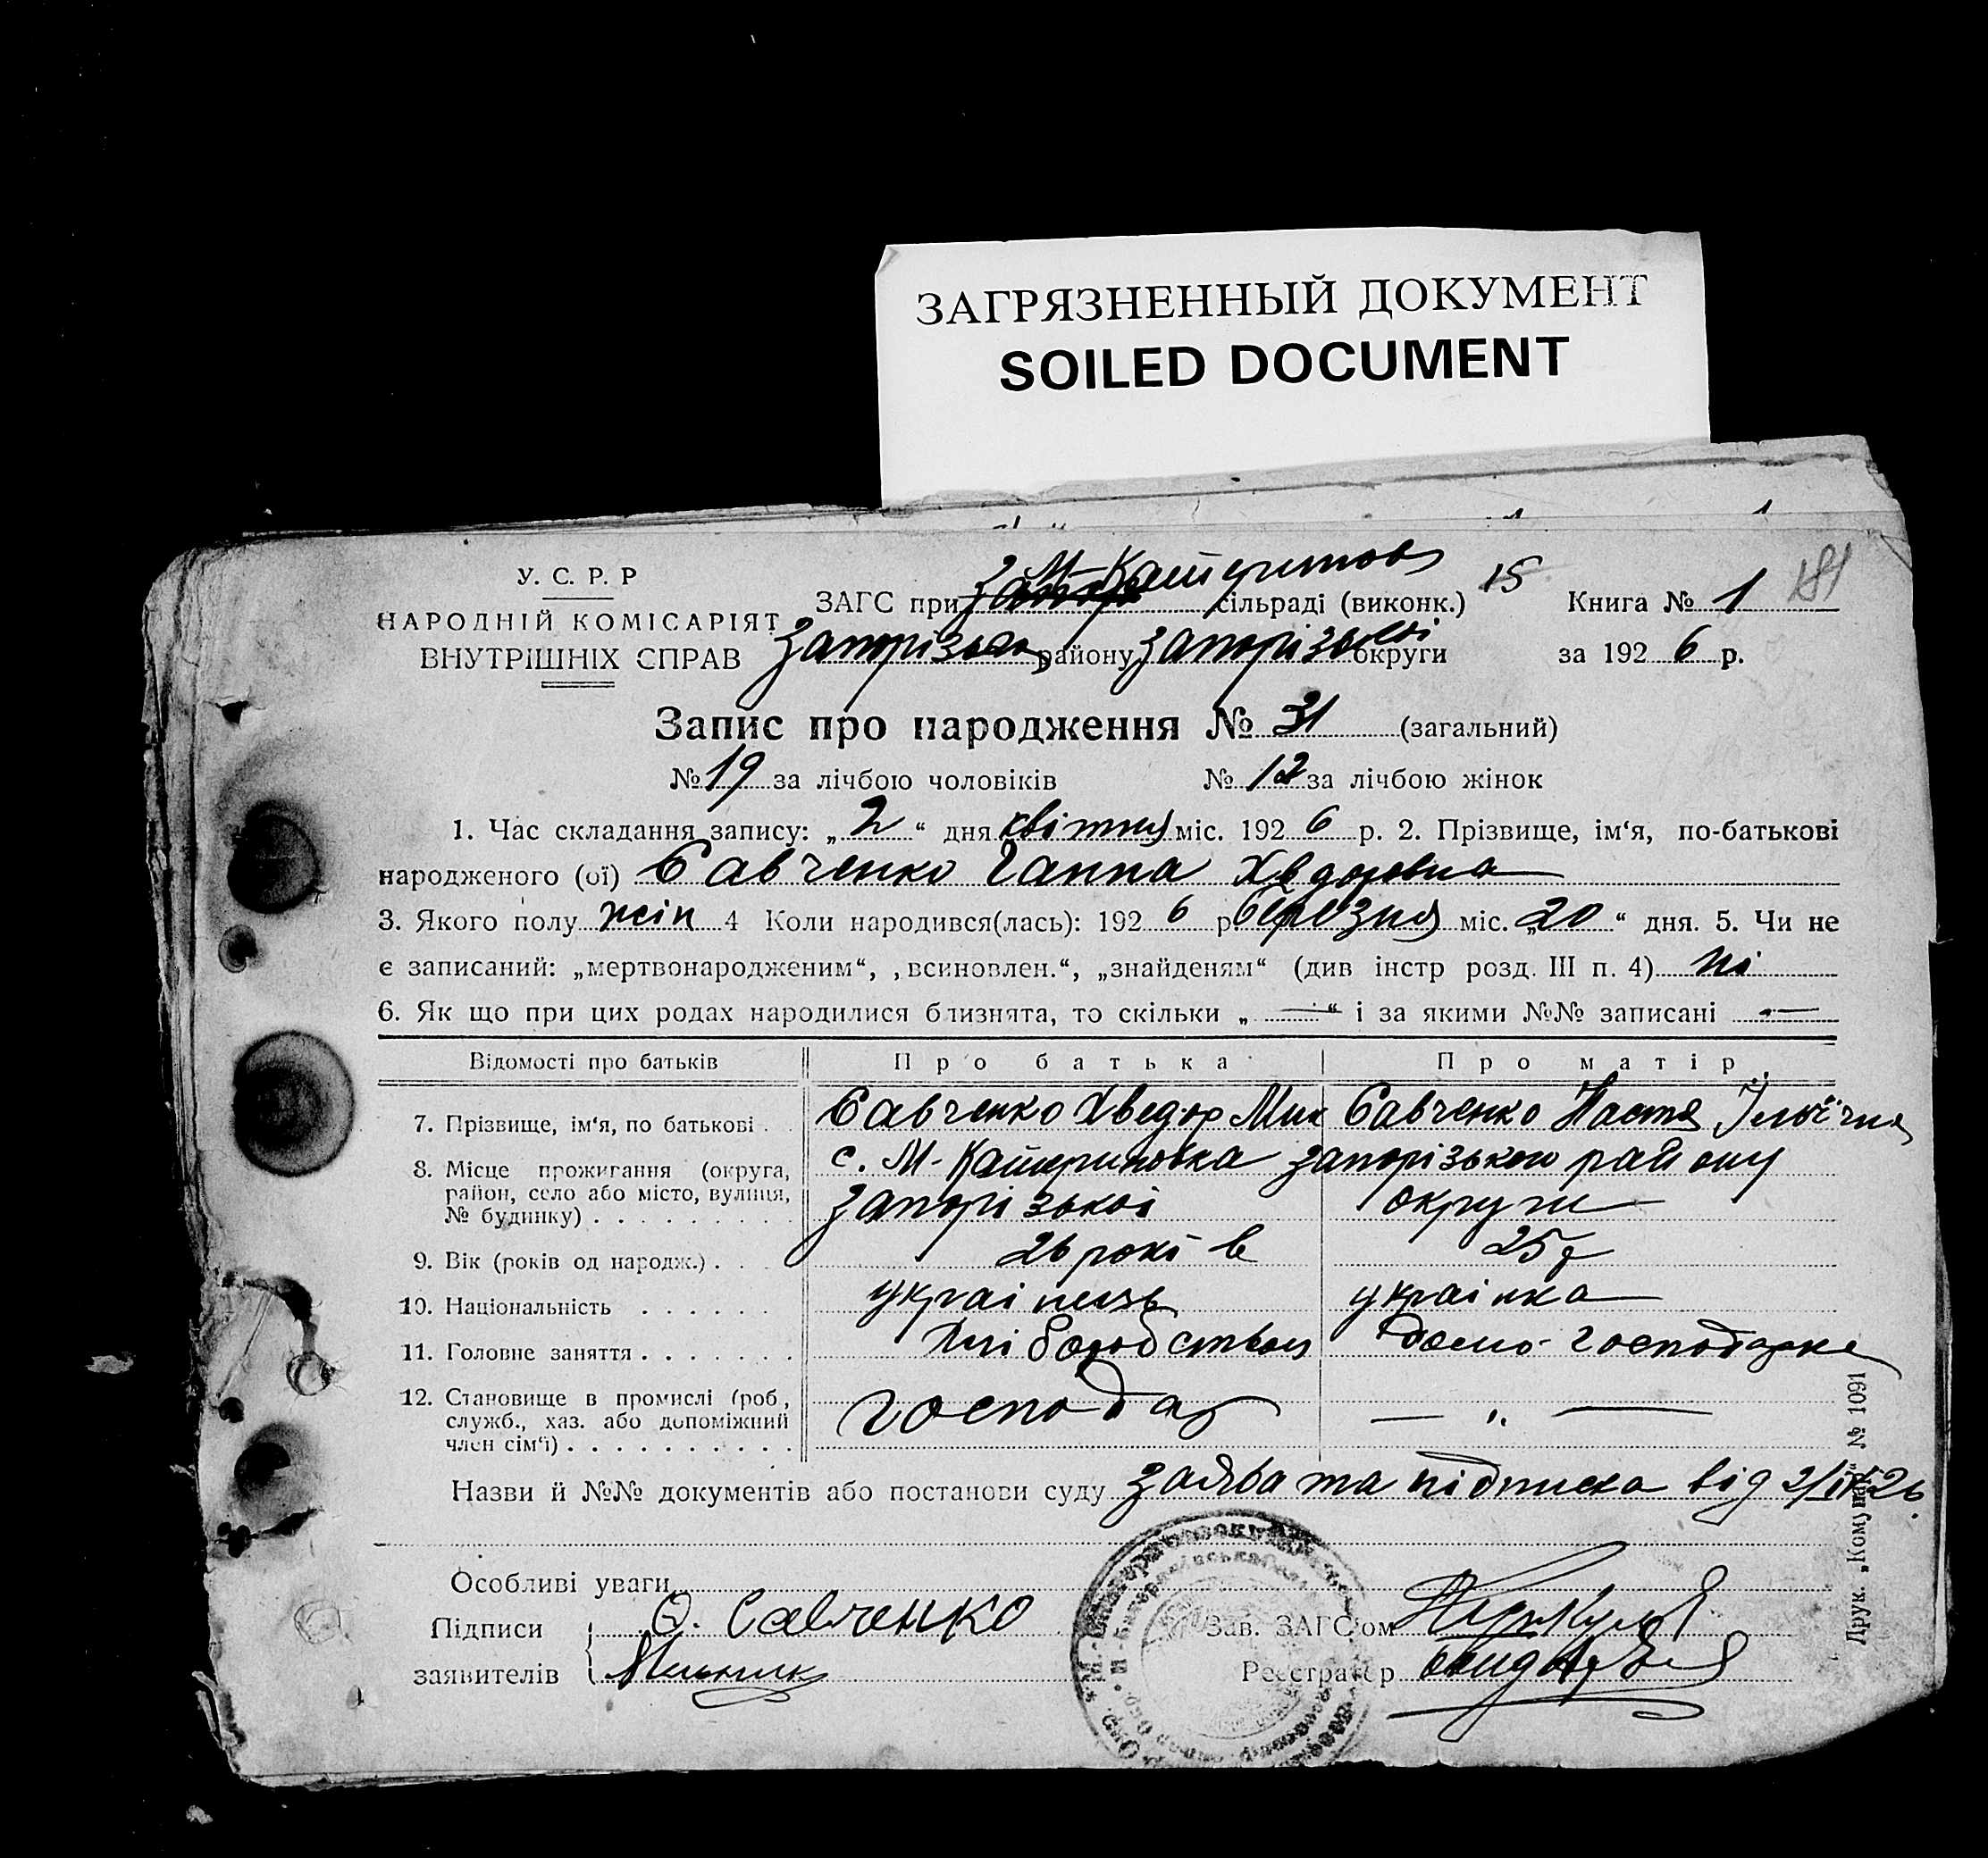 ЗАГРЯЗНЕННЫЙ ДОКУМЕНТ
SOILED DOCUMENT
У. С. Р. Р
НАРОДНІЙ КОМІСАРІЯТ
ВНУТРІШНІХ СПРАВ
ЗАГС при М-Катеринов сільраді (виконк.) 15
Запорізько району Запорізької округи
Книга № 1 181
за 1926 р.
Запис про народження № 31 (загальний)
№ 19 за лічбою чоловіків № 12 за лічбою жінок
1. Час складання запису: „2“ дня квітня міс. 1926 р. 2. Прізвище, ім‘я, по-батькові
народженого (ої) Савченко Ганна Хведоровна
3. Якого полу жін 4 Коли народився(лась): 1926 р березня міс. „20“ дня. 5. Чи не
є записаний: „мертвонародженим“, „всиновлен.“, „знайденям“ (див інстр розд. III п. 4) ні
6. Як що при цих родах народилися близнята, то скільки „—“ і за якими №№ записані —
Відомості про батьків Про батька Про матір
7. Прізвище, ім‘я, по батькові . . Савченко Хведор Мик Савченко Настя Ільїчна
8. Місце проживання (округа, район, село або місто, вулиця, № будинку) . . . . . . . . . с. М-Катериновка запорізького району
запорізької округи
9. Вік (років од народж.) . . . 26 років 25 р
10. Національність . . . . . . українець українка
11. Головне заняття . . . . . . . Хліборобством домо-господарка
12. Становище в промислі (роб, служб., хаз. або допоміжний член сім‘ї) . . . . . . . . . . господар — „ —
Назви й №№ документів або постанови суду заява та підписка від 2/IV 26
Особливі уваги
Підписи заявителів О. Савченко
Зав. ЗАГС‘ом
Реєстратор
Друк. „Комунар“ № 1091